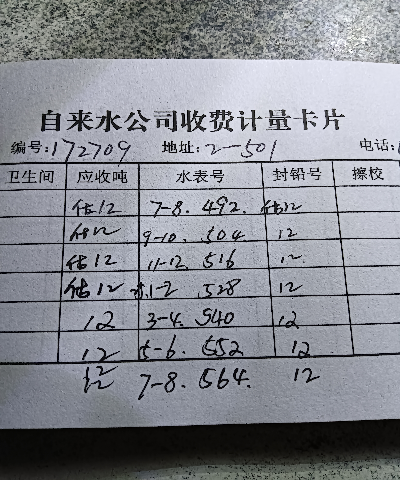 自来水公司收费计量卡片
编号:172709 地址: 2-501 电话:
卫生间 应收吨 水表号 封铅号 擦校
估12 7-8. 492. 估12
估12 9-10. 504. 12
估12 11-12. 516 12.
估12 1-2 528 12
12 3-4. 540 12
12 5-6. 552 12
12 7-8. 564. 12